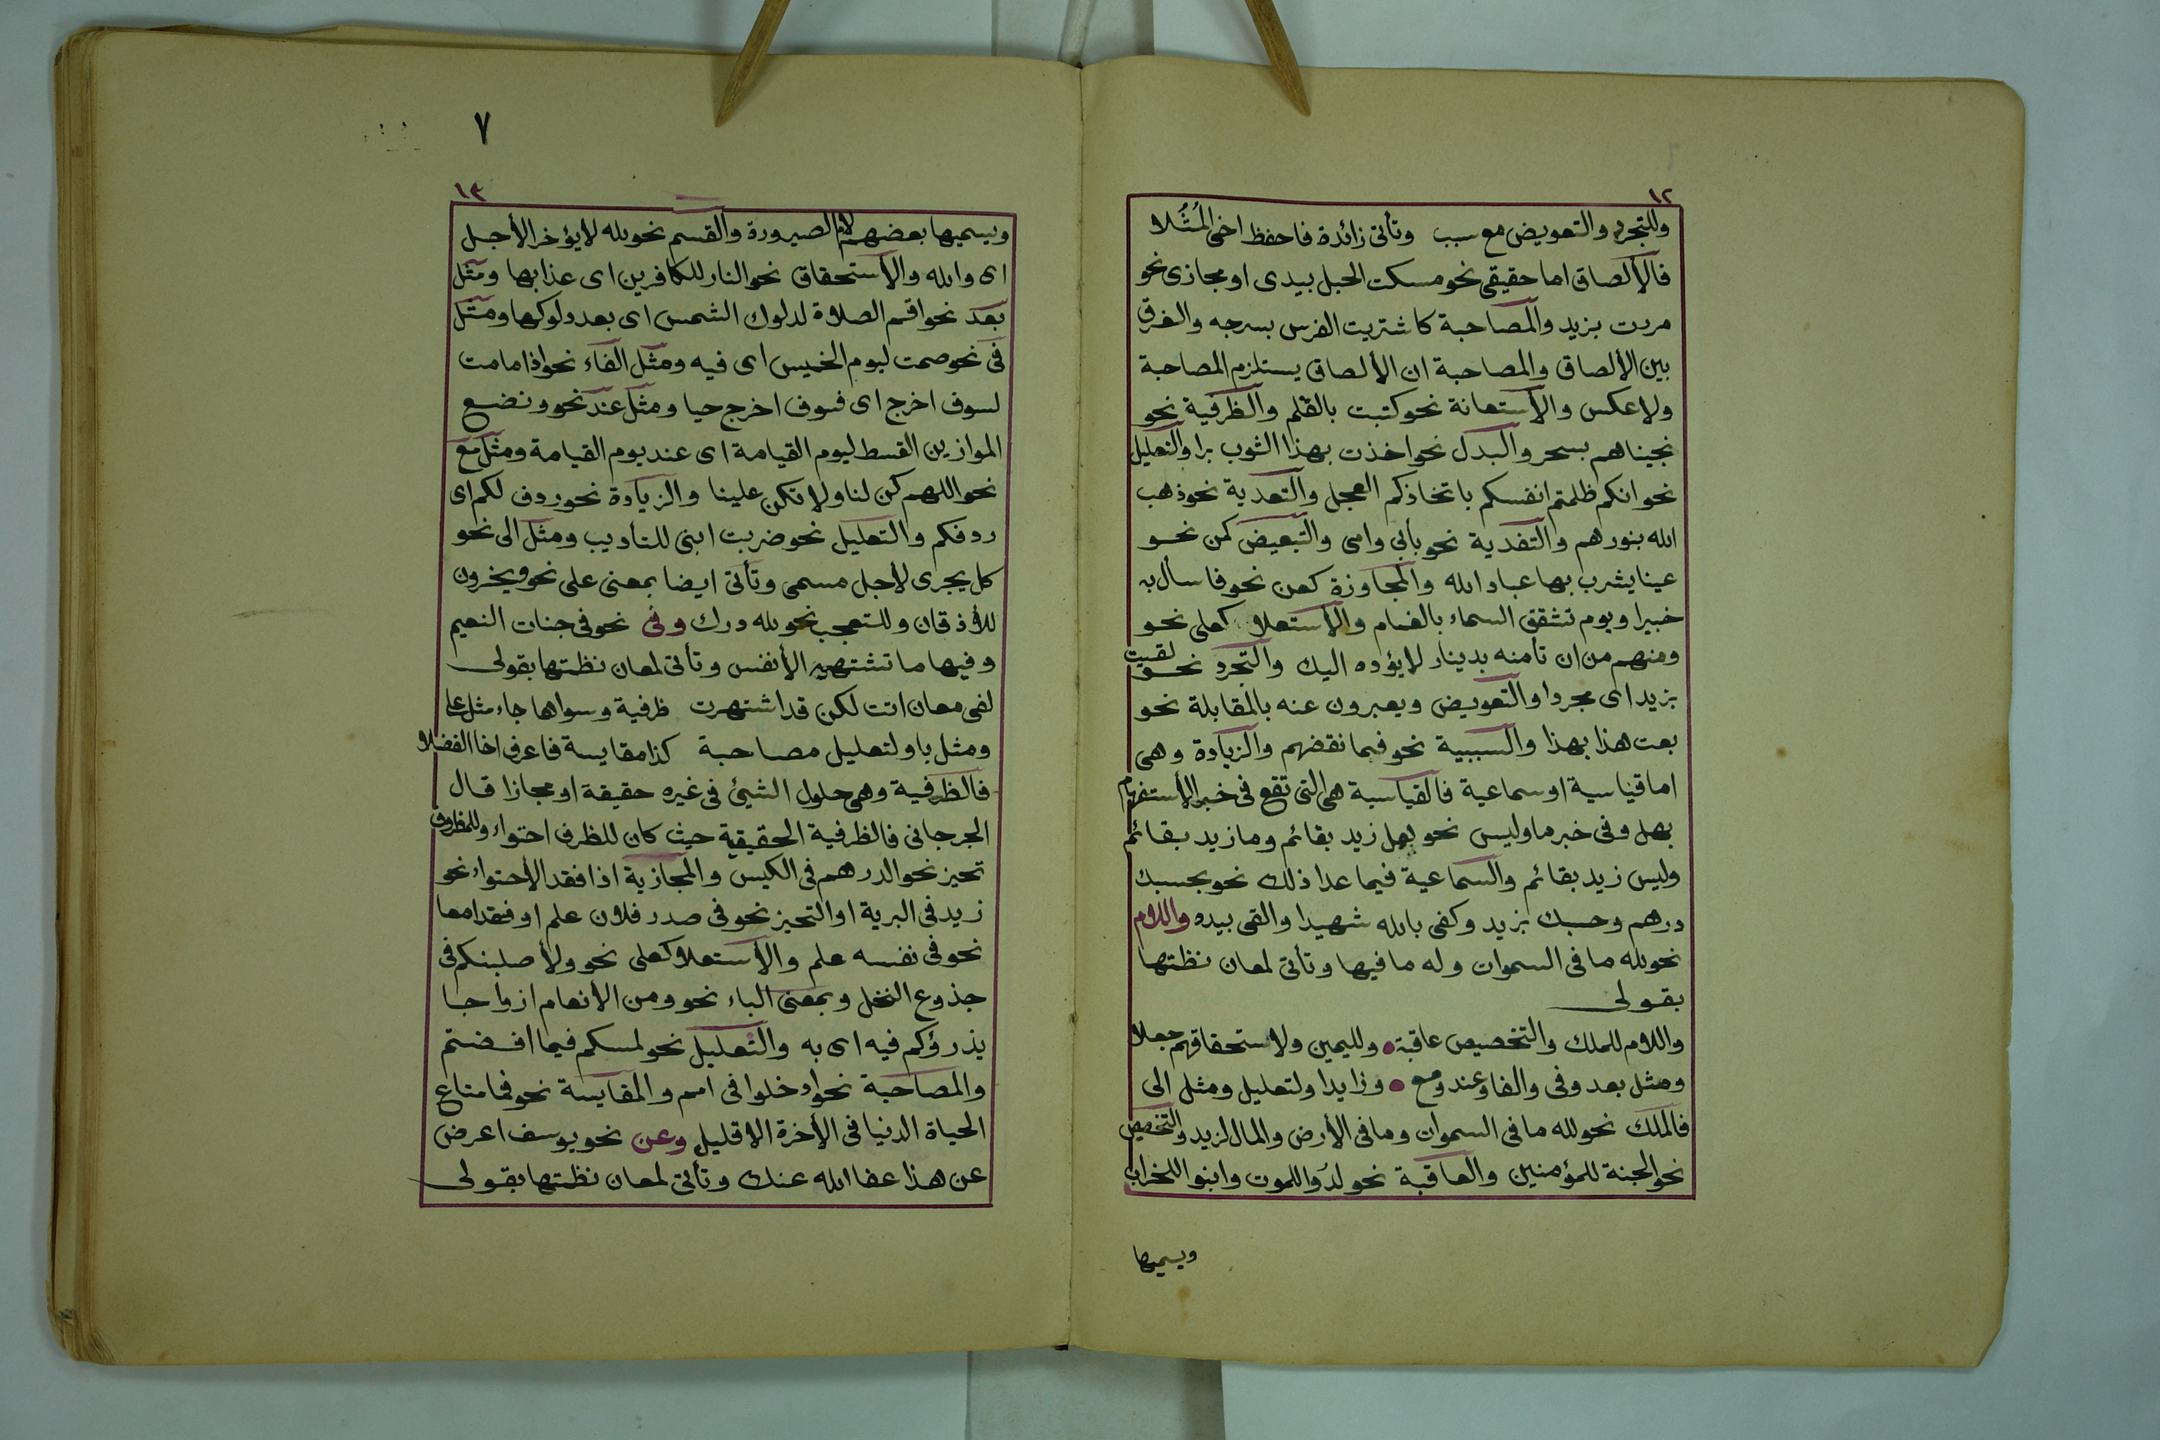 ١٢
والتجرد والتعويض مع سبب وتأتى زائدة فاحفظ اخى المُثُلا
فالألصاق اما حقيقى نحو مسكت الحبل بيدى او مجازى نحو
مررت بزيد والمصاحبة كاشتريت الفرس بسرجه والفرق
بين الألصاق والمصاحبة ان الألصاق يستلزم المصاحبة
ولا عكس والأستعانة نحو كتبت بالقلم والظرفية نحو
نجيناهم بسحر والبدل نحو اخذت بهذا الثوب برا والتعليل
نحو انكم ظلمتم انفسكم باتخاذكم العجل والتعدية نحو ذهب
الله بنورهم والتفدية نحو بأبى وامى والتبعيض كمن نحو
عينا يشرب بها عباد الله والمجاوزة كعن نحو فاسأل به
خبيرا ويوم تشقق السماء بالغمام والأستعلا كعلى نحو
ومنهم من ان تأمنه بدينار لا يؤده اليك والتجرد نحو لقيت
بزيد اى مجردا والتعويض ويعبرون عنه بالمقابلة نحو
بعت هذا بهذا والسببية نحو فبما نقضهم والزيادة وهى
اما قياسية او سماعية فالقياسية هى التى تقع فى خبر الأستفهام
بهل وفى خبر ما وليس نحو هل زيد بقائم وما زيد بقائم
وليس زيد بقائم والسماعية فيما عدا ذلك نحو بحسبك
درهم وحسبك بزيد وكفى بالله شهيدا والقى بيده واللام
نحو لله ما فى السموات وله ما فيها وتأتى لمعان نظمتها
بقولى
واللام للملك والتخصيص عاقبة ولليمين ولاستحقاقهم جعلا
ومثل بعد وفى والفا وعند ومع وزايدا ولتعليل ومثل الى
فالملك نحو لله ما فى السموات وما فى الأرض والمال لزيد والتخصيص
نحو الجنة للمؤمنين والعاقبة نحو لدوا للموت وابنوا للخراب
ويسميها
٧
١٣
ويسميها بعضهم لام الصيرورة والقسم نحو لله لا يؤخر الأجل
اى والله والأستحقاق نحو النار للكافرين اى عذابها ومثل
بعد نحو اقم الصلاة لدلوك الشمس اى بعد دلوكها ومثل
فى نحو صمت ليوم الخميس اى فيه ومثل الفاء نحو اذا ما مت
لسوف اخرج اى فسوف اخرج حيا ومثل عند نحو ونضع
الموازين القسط ليوم القيامة اى عند يوم القيامة ومثل مع
نحو اللهم كن لنا ولا تكن علينا والزيادة نحو ردف لكم اى
ردفكم والتعليل نحو ضربت ابنى للتأديب ومثل الى نحو
كل يجرى لأجل مسمى وتأتى ايضا بمعنى على نحو ويخرون
للأذقان وللتعجب نحو لله درك وفى نحو فى جنات النعيم
وفيها ما تشتهيه الأنفس وتأتى لمعان نظمتها بقولى
لفى معان اتت لكن قد اشتهرت ظرفية وسواها جاء مثل على
ومثل با ولتعليل مصاحبة كذا مقايسة فاعرف اخا الفضلا
فالظرفية وهى حلول الشيئ فى غيره حقيقة او مجازا قال
الجرجانى فالظرفية الحقيقية حيث كان للظرف احتواء وللمظروف
تحيز نحو الدرهم فى الكيس والمجازية اذا فقد الأحتواء نحو
زيد فى البرية او التحيز نحو فى صدر فلان علم او فقدا معا
نحو فى نفسه علم والأستعلا كعلى نحو ولأصلبنكم فى
جذوع النخل وبمعنى الباء نحو ومن الانعام ازواجا
يذرؤكم فيه اى به والتعليل نحو لمسكم فيما افضتم
والمصاحبة نحو ادخلوا فى امم والمقايسة نحو فما متاع
الحياة الدنيا فى الأخرة الا قليل وعن نحو يوسف اعرض
عن هذا عفا الله عنك وتأتى لمعان نظمتها بقولى